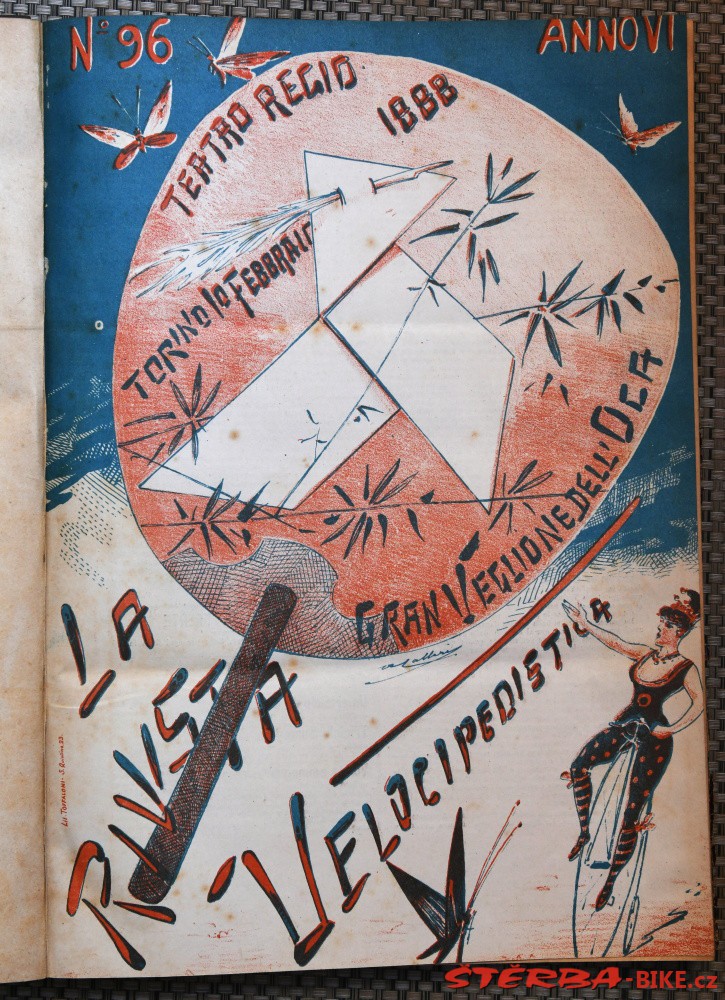 Nº 96
ANNO VI
TEATRO REGIO 1888
TORINO 10 FEBBRAIO
GRAN VEGLIONE DELL'OCA
LA
RIVISTA
VELOCIPEDISTICA
ŠTĚRBA-BIKE.cz